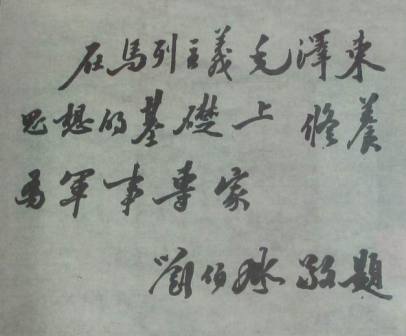 在馬列主義毛澤東
思想的基礎上 修養
為軍事專家
劉伯承敬題